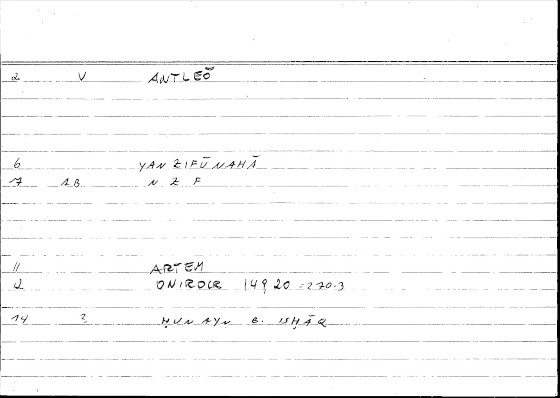 2 V ANTLEŌ
6 YANZIFŪNAHĀ
7 1B N Z F
11 ARTEM
12 ONIROCR 149 20 = 270.3
14 2 ḤUNAYN B. ISḤĀQ